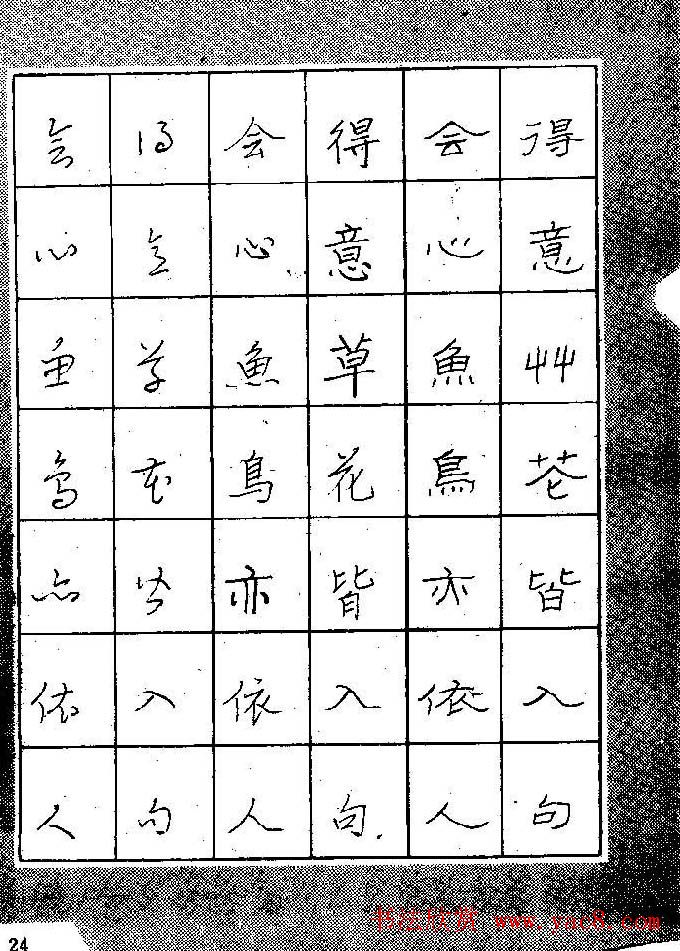 得意艸花皆入句
会心魚鳥亦依人
得意草花皆入句
会心魚鳥亦依人
得意草花皆入句
会心魚鳥亦依人
24
www.yac8.com